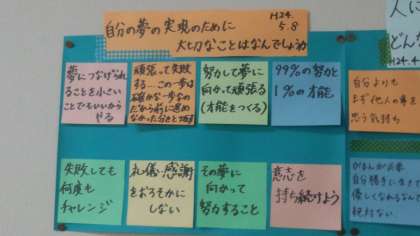 自分の夢の実現のために
H24.
5.8
大切なことはなんでしょうか
夢につなげられ
ることを小さい
ことでもいいから
やる
頑張って失敗
する…この一歩は
確かな一歩なの
だから前に進め
なかった分きっと
努力して夢に
向かって頑張る
(才能をつくる)
99%の努力と
1%の才能
自分よりも
まず他人の事を
思う気持ち
失敗しても
何度も
チャレンジ
礼儀・感謝
をおろそかに
しない
その夢に
向かって
努力すること
意志を
持ち続けよう
自分勝手に生き
優しくなれるなんて
絶対ない
人に
どん
H24.4